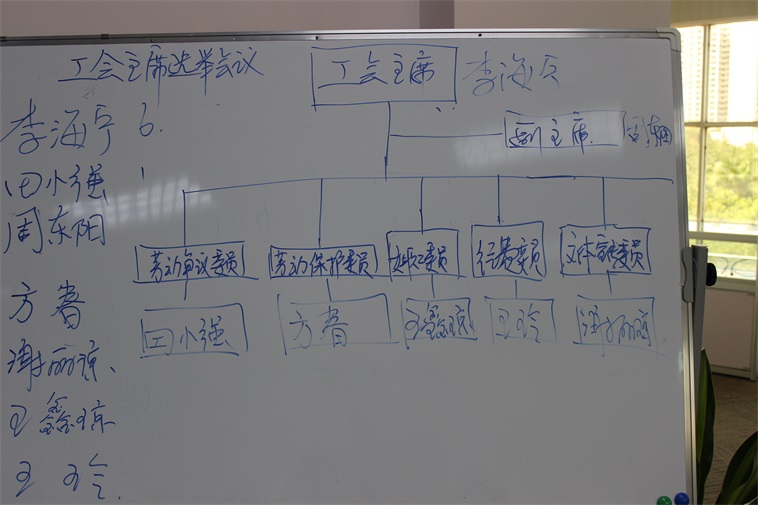 工会主席选举会议
工会主席 李海宁
副主席 周东阳
李海宁 6.
田小强 1
周东阳
方春
谢丽琼、
王鑫琼
王玲.
劳动争议委员 劳动保护委员 女职工委员 经费委员 文体宣传委员
田小强 方春 王鑫琼 王玲 谢丽琼